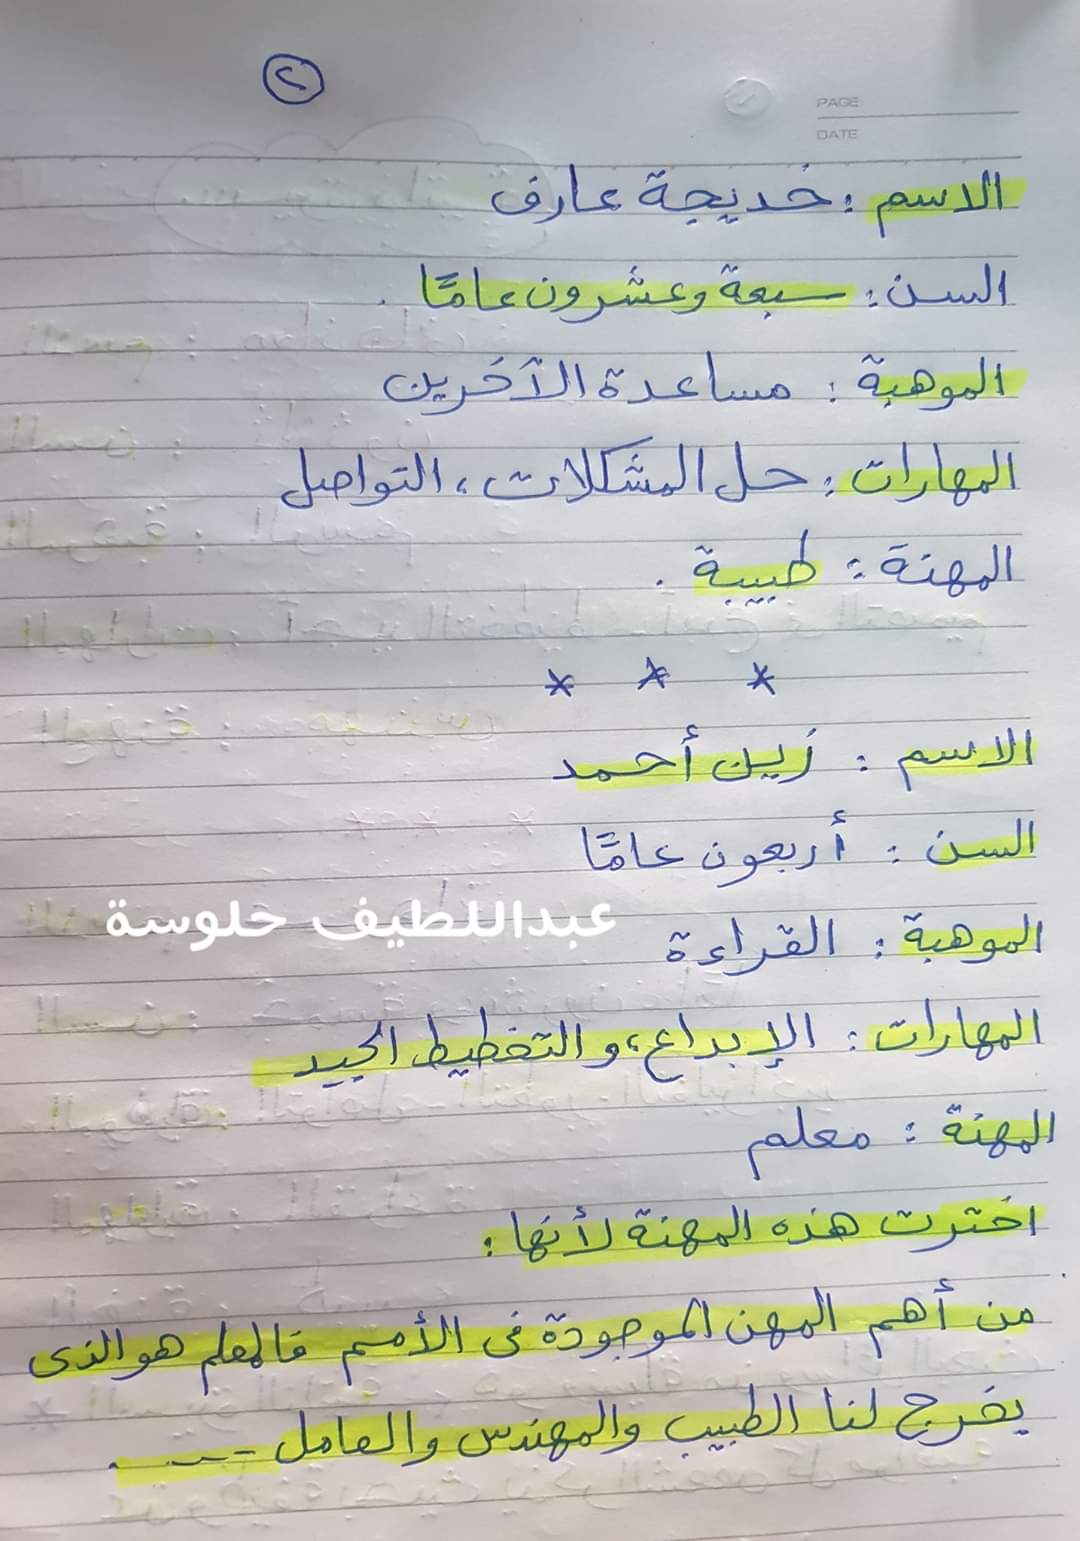 ٢
PAGE
DATE
الاسم : خديجة عارف
السن : سبعة وعشرون عامًا .
الموهبة : مساعدة الآخرين
المهارات : حل المشكلات ، التواصل
المهنة : طبيبة .
* * *
الاسم : زين أحمد
السن : أربعون عامًا
عبداللطيف حلوسة
الموهبة : القراءة
المهارات : الإبداع ، والتخطيط الجيد
المهنة : معلم
اخترت هذه المهنة لأنها :
من أهم المهن الموجودة فى الأمم فالمعلم هو الذى
يخرج لنا الطبيب والمهندس والعامل --- .